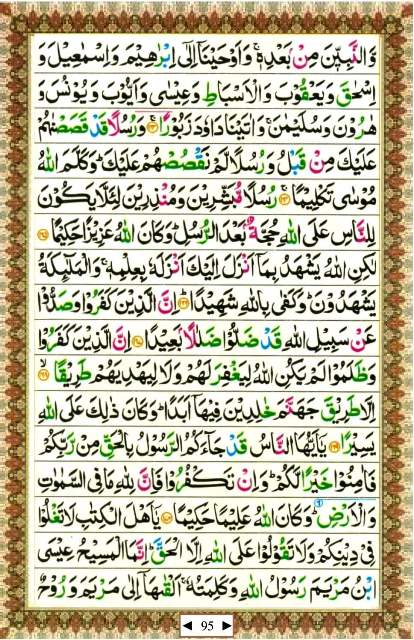 وَّالنَّبِيّٖنَ مِنْۢ بَعْدِهٖ ۚ وَاَوْحَيْنَاۤ اِلٰۤى اِبْرٰهِيْمَ وَاِسْمٰعِيْلَ وَ
اِسْحٰقَ وَيَعْقُوْبَ وَالْاَسْبَاطِ وَعِيْسٰى وَاَيُّوْبَ وَيُوْنُسَ وَ
هٰرُوْنَ وَسُلَيْمٰنَ ۚ وَاٰتَيْنَا دَاوٗدَ زَبُوْرًا ۚ ﴿۱۶۳﴾ وَرُسُلًا قَدْ قَصَصْنٰهُمْ
عَلَيْكَ مِنْ قَبْلُ وَرُسُلًا لَّمْ نَقْصُصْهُمْ عَلَيْكَ ؕ وَكَلَّمَ اللّٰهُ
مُوْسٰى تَكْلِيْمًا ۚ ﴿۱۶۴﴾ رُسُلًا مُّبَشِّرِيْنَ وَمُنْذِرِيْنَ لِئَلَّا يَكُوْنَ
لِلنَّاسِ عَلَى اللّٰهِ حُجَّةٌۢ بَعْدَ الرُّسُلِ ؕ وَكَانَ اللّٰهُ عَزِيْزًا حَكِيْمًا ﴿۱۶۵﴾
لٰكِنِ اللّٰهُ يَشْهَدُ بِمَاۤ اَنْزَلَ اِلَيْكَ اَنْزَلَهٗ بِعِلْمِهٖ ۚ وَالْمَلٰٓئِكَةُ
يَشْهَدُوْنَ ؕ وَكَفٰى بِاللّٰهِ شَهِيْدًا ؕ ﴿۱۶۶﴾ اِنَّ الَّذِيْنَ كَفَرُوْا وَصَدُّوْا
عَنْ سَبِيْلِ اللّٰهِ قَدْ ضَلُّوْا ضَلٰلًاۢ بَعِيْدًا ﴿۱۶۷﴾ اِنَّ الَّذِيْنَ كَفَرُوْا
وَظَلَمُوْا لَمْ يَكُنِ اللّٰهُ لِيَغْفِرَ لَهُمْ وَلَا لِيَهْدِيَهُمْ طَرِيْقًا ۙ ﴿۱۶۸﴾
اِلَّا طَرِيْقَ جَهَنَّمَ خٰلِدِيْنَ فِيْهَاۤ اَبَدًا ؕ وَكَانَ ذٰلِكَ عَلَى اللّٰهِ
يَسِيْرًا ﴿۱۶۹﴾ يٰۤاَيُّهَا النَّاسُ قَدْ جَآءَكُمُ الرَّسُوْلُ بِالْحَقِّ مِنْ رَّبِّكُمْ
فَاٰمِنُوْا خَيْرًا لَّكُمْ ؕ وَاِنْ تَكْفُرُوْا فَاِنَّ لِلّٰهِ مَا فِى السَّمٰوٰتِ
وَالْاَرْضِ ؕ وَكَانَ اللّٰهُ عَلِيْمًا حَكِيْمًا ﴿۱۷۰﴾ يٰۤاَهْلَ الْكِتٰبِ لَا تَغْلُوْا
فِىْ دِيْنِكُمْ وَلَا تَقُوْلُوْا عَلَى اللّٰهِ اِلَّا الْحَقَّ ؕ اِنَّمَا الْمَسِيْحُ عِيْسَى
ابْنُ مَرْيَمَ رَسُوْلُ اللّٰهِ وَكَلِمَتُهٗ ۚ اَلْقٰهَاۤ اِلٰى مَرْيَمَ وَرُوْحٌ
◄ 95 ►